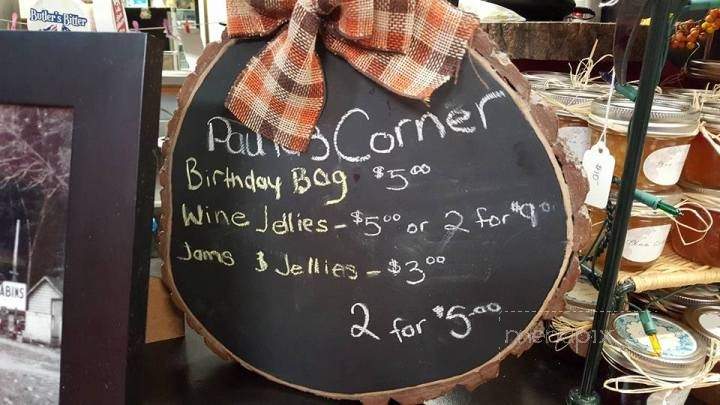 Butler's Bitter
Corner
Birthday Bag $5.00
Wine Jellies - $5.00 or 2 for $9.0
Jams & Jellies - $3.00
2 for $5.00
ABINS
menupix